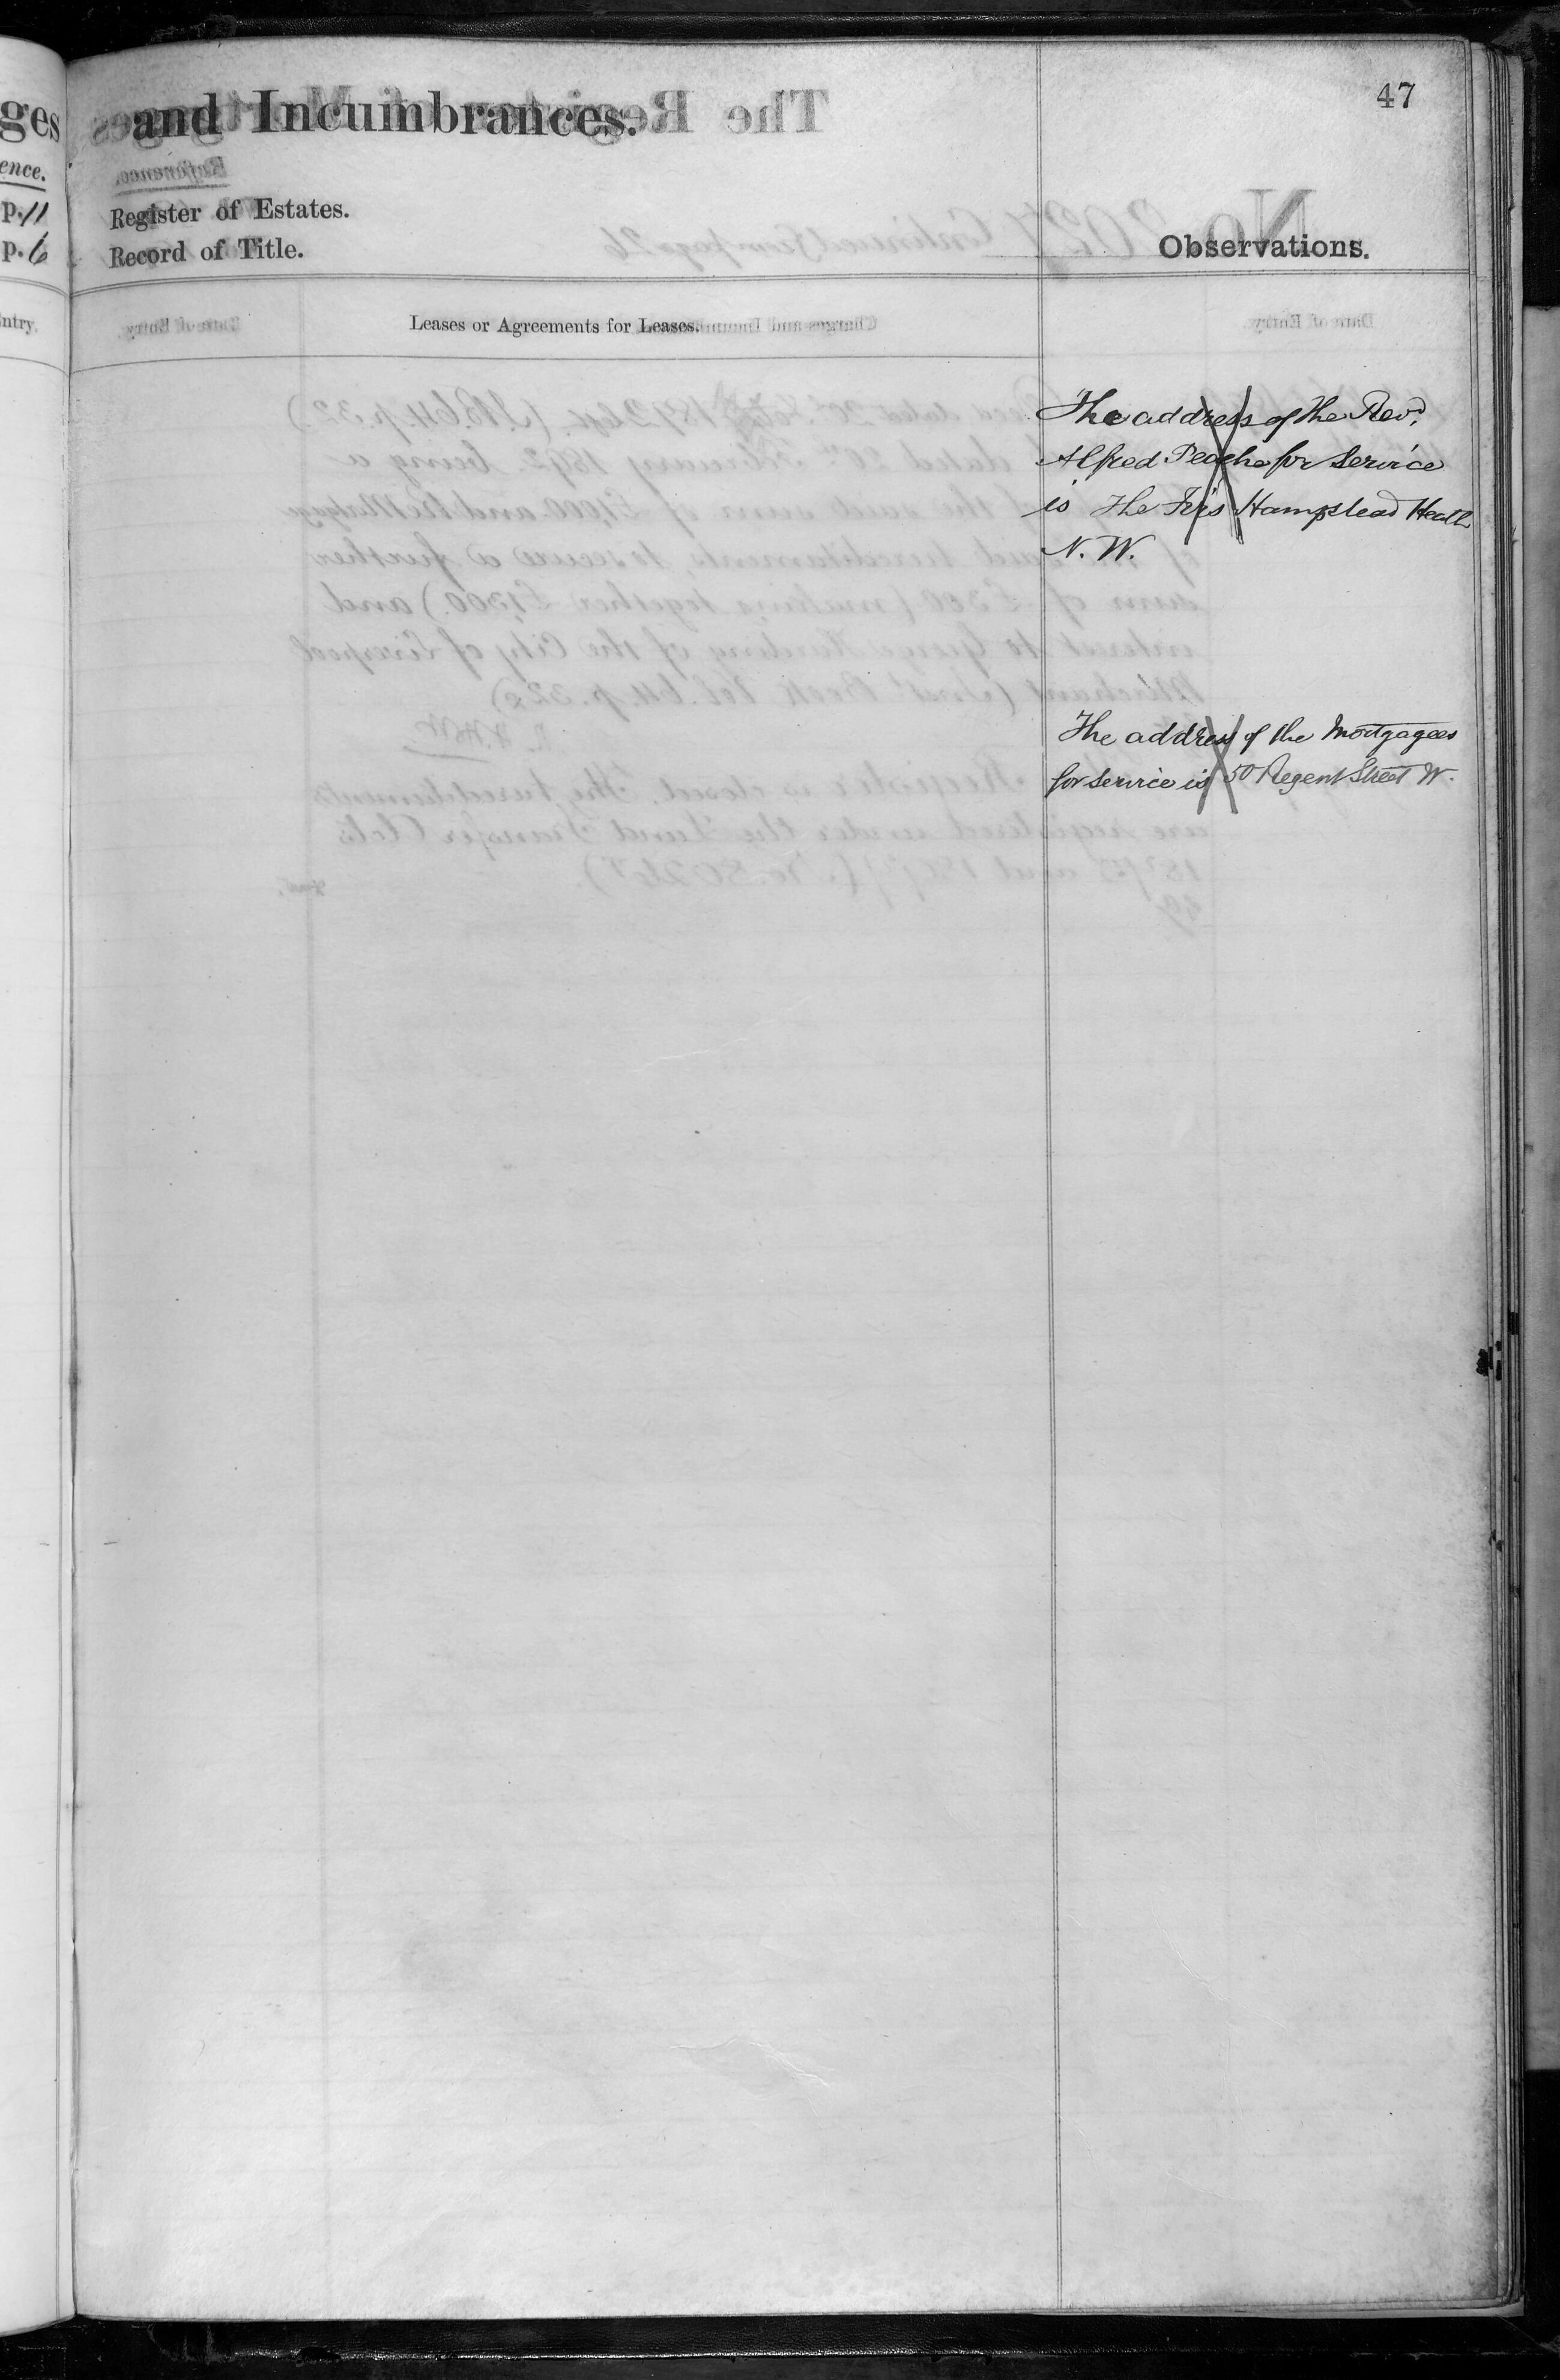 47
and Incumbrances.
Register of Estates.
Record of Title.
Observations.
Leases or Agreements for Leases.
The address of the Revd.
Alfred Peache for Service
is The Firs Hampstead Heath
N. W.
The address of the Mortgagees
for Service is 50 Regent Street W.
ges
ence.
p. 11
p. 6
ntry.